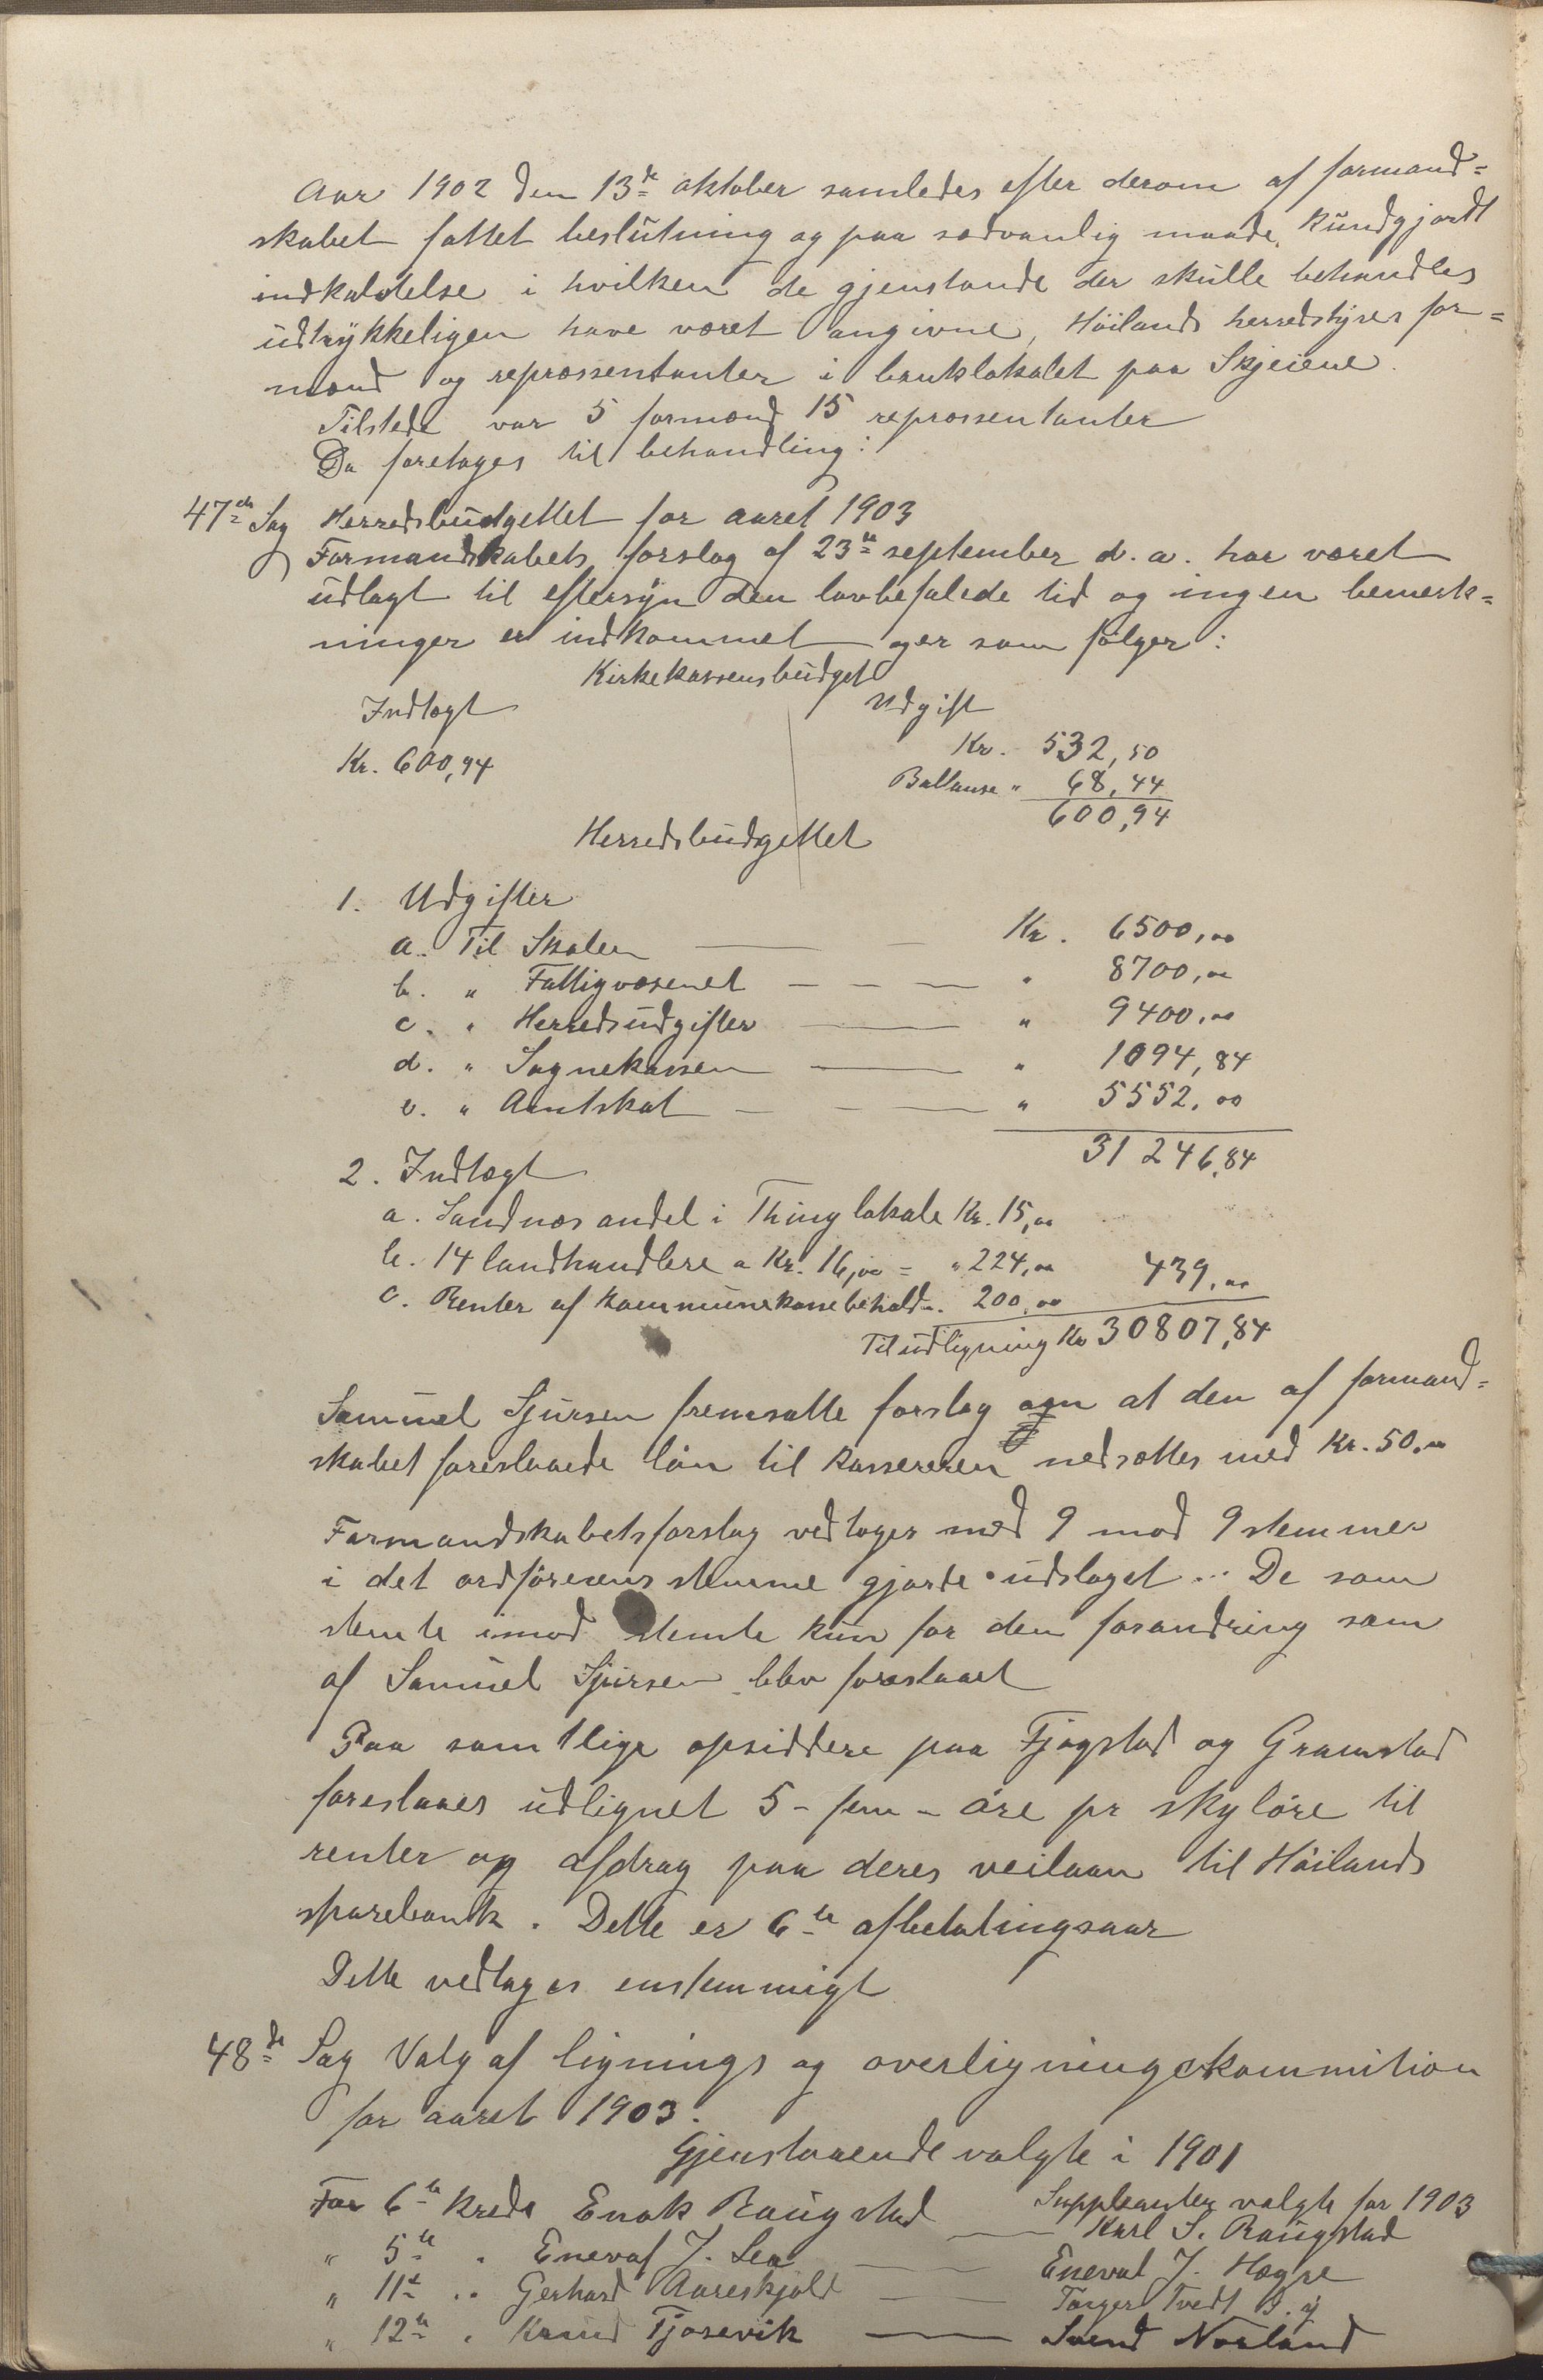 Aar 1902 den 13de oktober samledes efter derom af formand=
skabet fattet beslutning og paa sædvanlig maade kundgjordt
indkaldelse i hvilken de gjenstande der skulle behandles
udtrykkeligen have været angivne, Höilands herredstyres for=
mænd og repræssentanter i banklokalet paa Skjeiene.
Tilstede var 5 formænd 15 repræssentanter
Da foretoges til behandling:
47de Sag Herredsbudgettet for aaret 1903
Formandskabets forslag af 23de september d. a. har været
udlagt til eftersyn den lovbefalede tid og ingen bemerk=
ninger er indkommet og er som følger:
Kirkekassens budget
Indtægt Udgift
Kr. 600,94 Kr. 532,50
Ballanse " 68,44
600,94
Herredsbudgettet
1. Udgifter
a. Til Skolen Kr. 6500,00
b. " Fattigvæsenet " 8700,00
c. " Herredsudgifter " 9400,00
d. " Sognekassen " 1094,84
e. " Amtskat " 5552,00
31246,84
2. Indtægt
a. Sandnæs andel i Thinglokale Kr. 15,00
b. 14 landhandlere a Kr. 16,00 = " 224,00 439,00
c. Renter af kommunekassebehold. 200,00
Til udligning Kr 30807,84
Samuel Sjursen fremsatte forslag om at den af formand=
skabet foreslaaede løn til kassereren nedsættes med Kr. 50,00
Formandskabetsforslag vedtoges med 9 mod 9 stemmer
i det ordførerens stemme gjorde udslaget. De som
stemte imod stemte kun for den forandring som
af Samuel Sjursen blev foreslaaet
Paa samtlige opsiddere paa Fjogstad og Gramstad
foreslaaes udlignet 5 - fem - øre pr skyløre til
renter og afdrag paa deres veilaan til Höilands
sparebank. Dette er 6te afbetalingsaar
Dette vedtoges enstemmigt
48de Sag Valg af lignings og overligningskommition
for aaret 1903.
Gjenstaaende valgte i 1901
For 6te kreds Enok Raugstad Suppleanter valgte for 1903
Karl S. Raugstad
" 5te " Enevald J. Lea Enevald J. Hogre
" 11te " Gerhard Aareskjold Torger Tvedt
" 12te " Knud Tjosevik Svend Norland